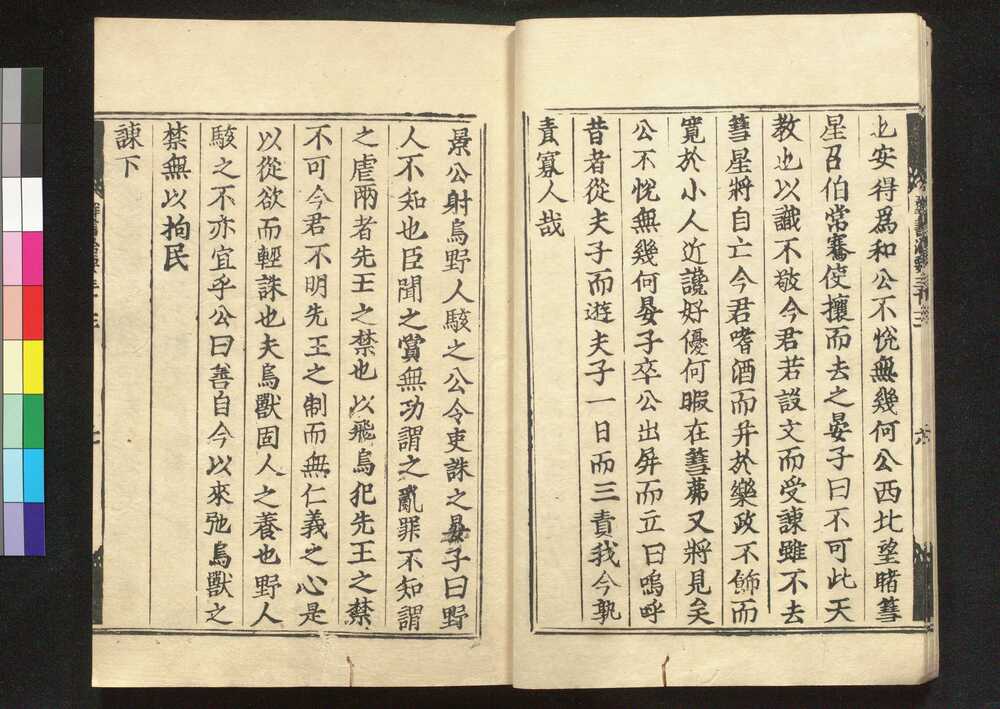 也安得爲和公不悅無幾何公西北望睹彗
星召伯常騫使攘而去之晏子曰不可此天
教也以識不敬今君若設文而受諫雖不去
彗星將自亡今君嗜酒而并於樂政不飾而
寬於小人近讒好優何暇在彗茀又將見矣
公不悅無幾何晏子卒公出屏而立曰嗚呼
昔者從夫子而遊夫子一日而三責我今孰
責寡人哉
景公射鳥野人駭之公令吏誅之晏子曰野
人不知也臣聞之賞無功謂之亂罪不知謂
之虐兩者先王之禁也以飛鳥犯先王之禁
不可今君不明先王之制而無仁義之心是
以從欲而輕誅也夫鳥獸固人之養也野人
駭之不亦宜乎公曰善自今以來弛鳥獸之
禁無以拘民
諫下